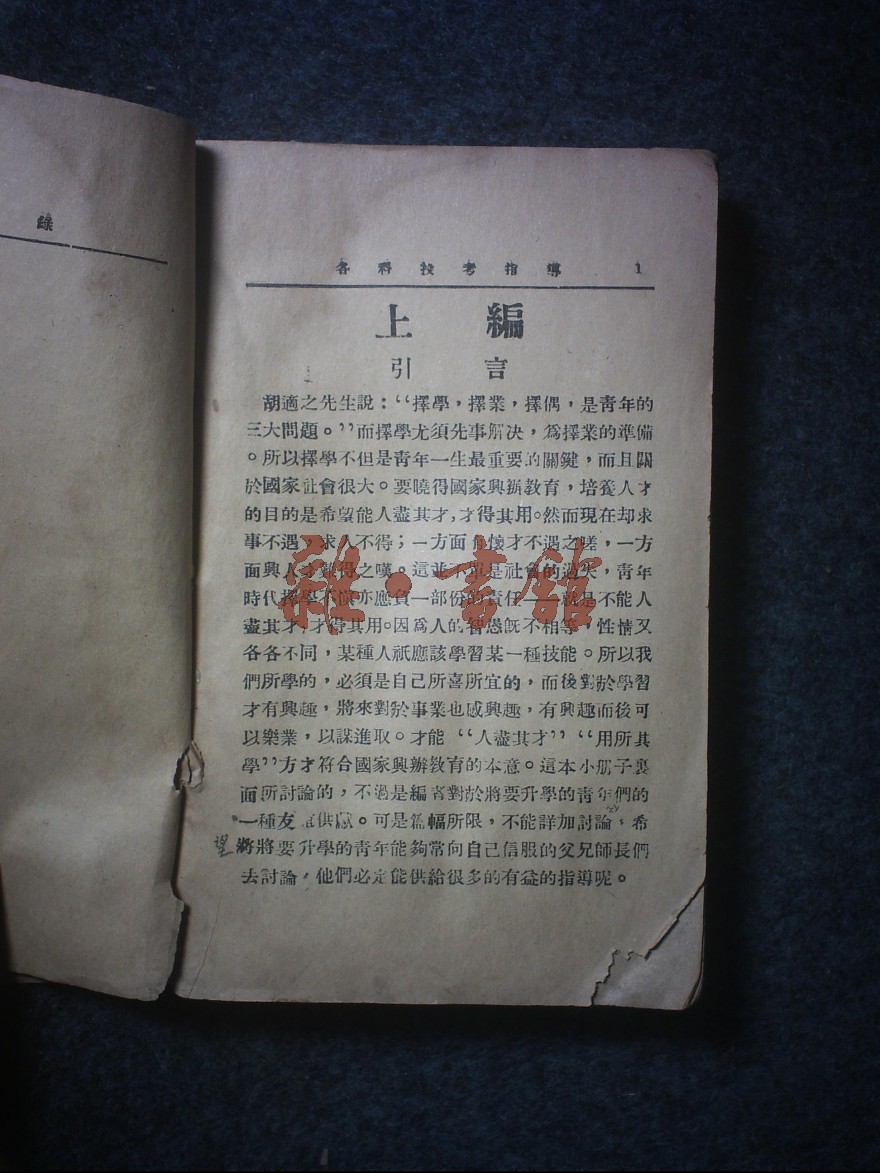 錄
各科投考指導 1
上編
引言
胡適之先生說：“擇學，擇業，擇偶，是靑年的
三大問題。”而擇學尤須先事解决，爲擇業的準備
。所以擇學不但是靑年一生最重要的關鍵，而且關
於國家社會很大。要曉得國家興辦敎育，培養人才
的目的是希望能人盡其才，才得其用。然而現在却求
事不遇，求人不得；一方面有懷才不遇之嗟，一方
面興人才難得之嘆。這並不單是社會的過失，靑年
時代擇學不愼亦應負一部份的責任——就是不能人
盡其才，才得其用。因爲人的智愚旣不相等，性情又
各各不同，某種人祇應該學習某一種技能。所以我
們所學的，必須是自己所喜所宜的，而後對於學習
才有興趣，將來對於事業也感興趣，有興趣而後可
以樂業，以謀進取。才能“人盡其才”“用所其
學”方才符合國家興辦敎育的本意。這本小册子裏
面所討論的，不過是編者對於將要升學的靑年們的
一種友誼供獻。可是篇幅所限，不能詳加討論，希
望將將要升學的靑年能夠常向自己信服的父兄師長們
去討論，他們必定能供給很多的有益的指導呢。
雜·書館